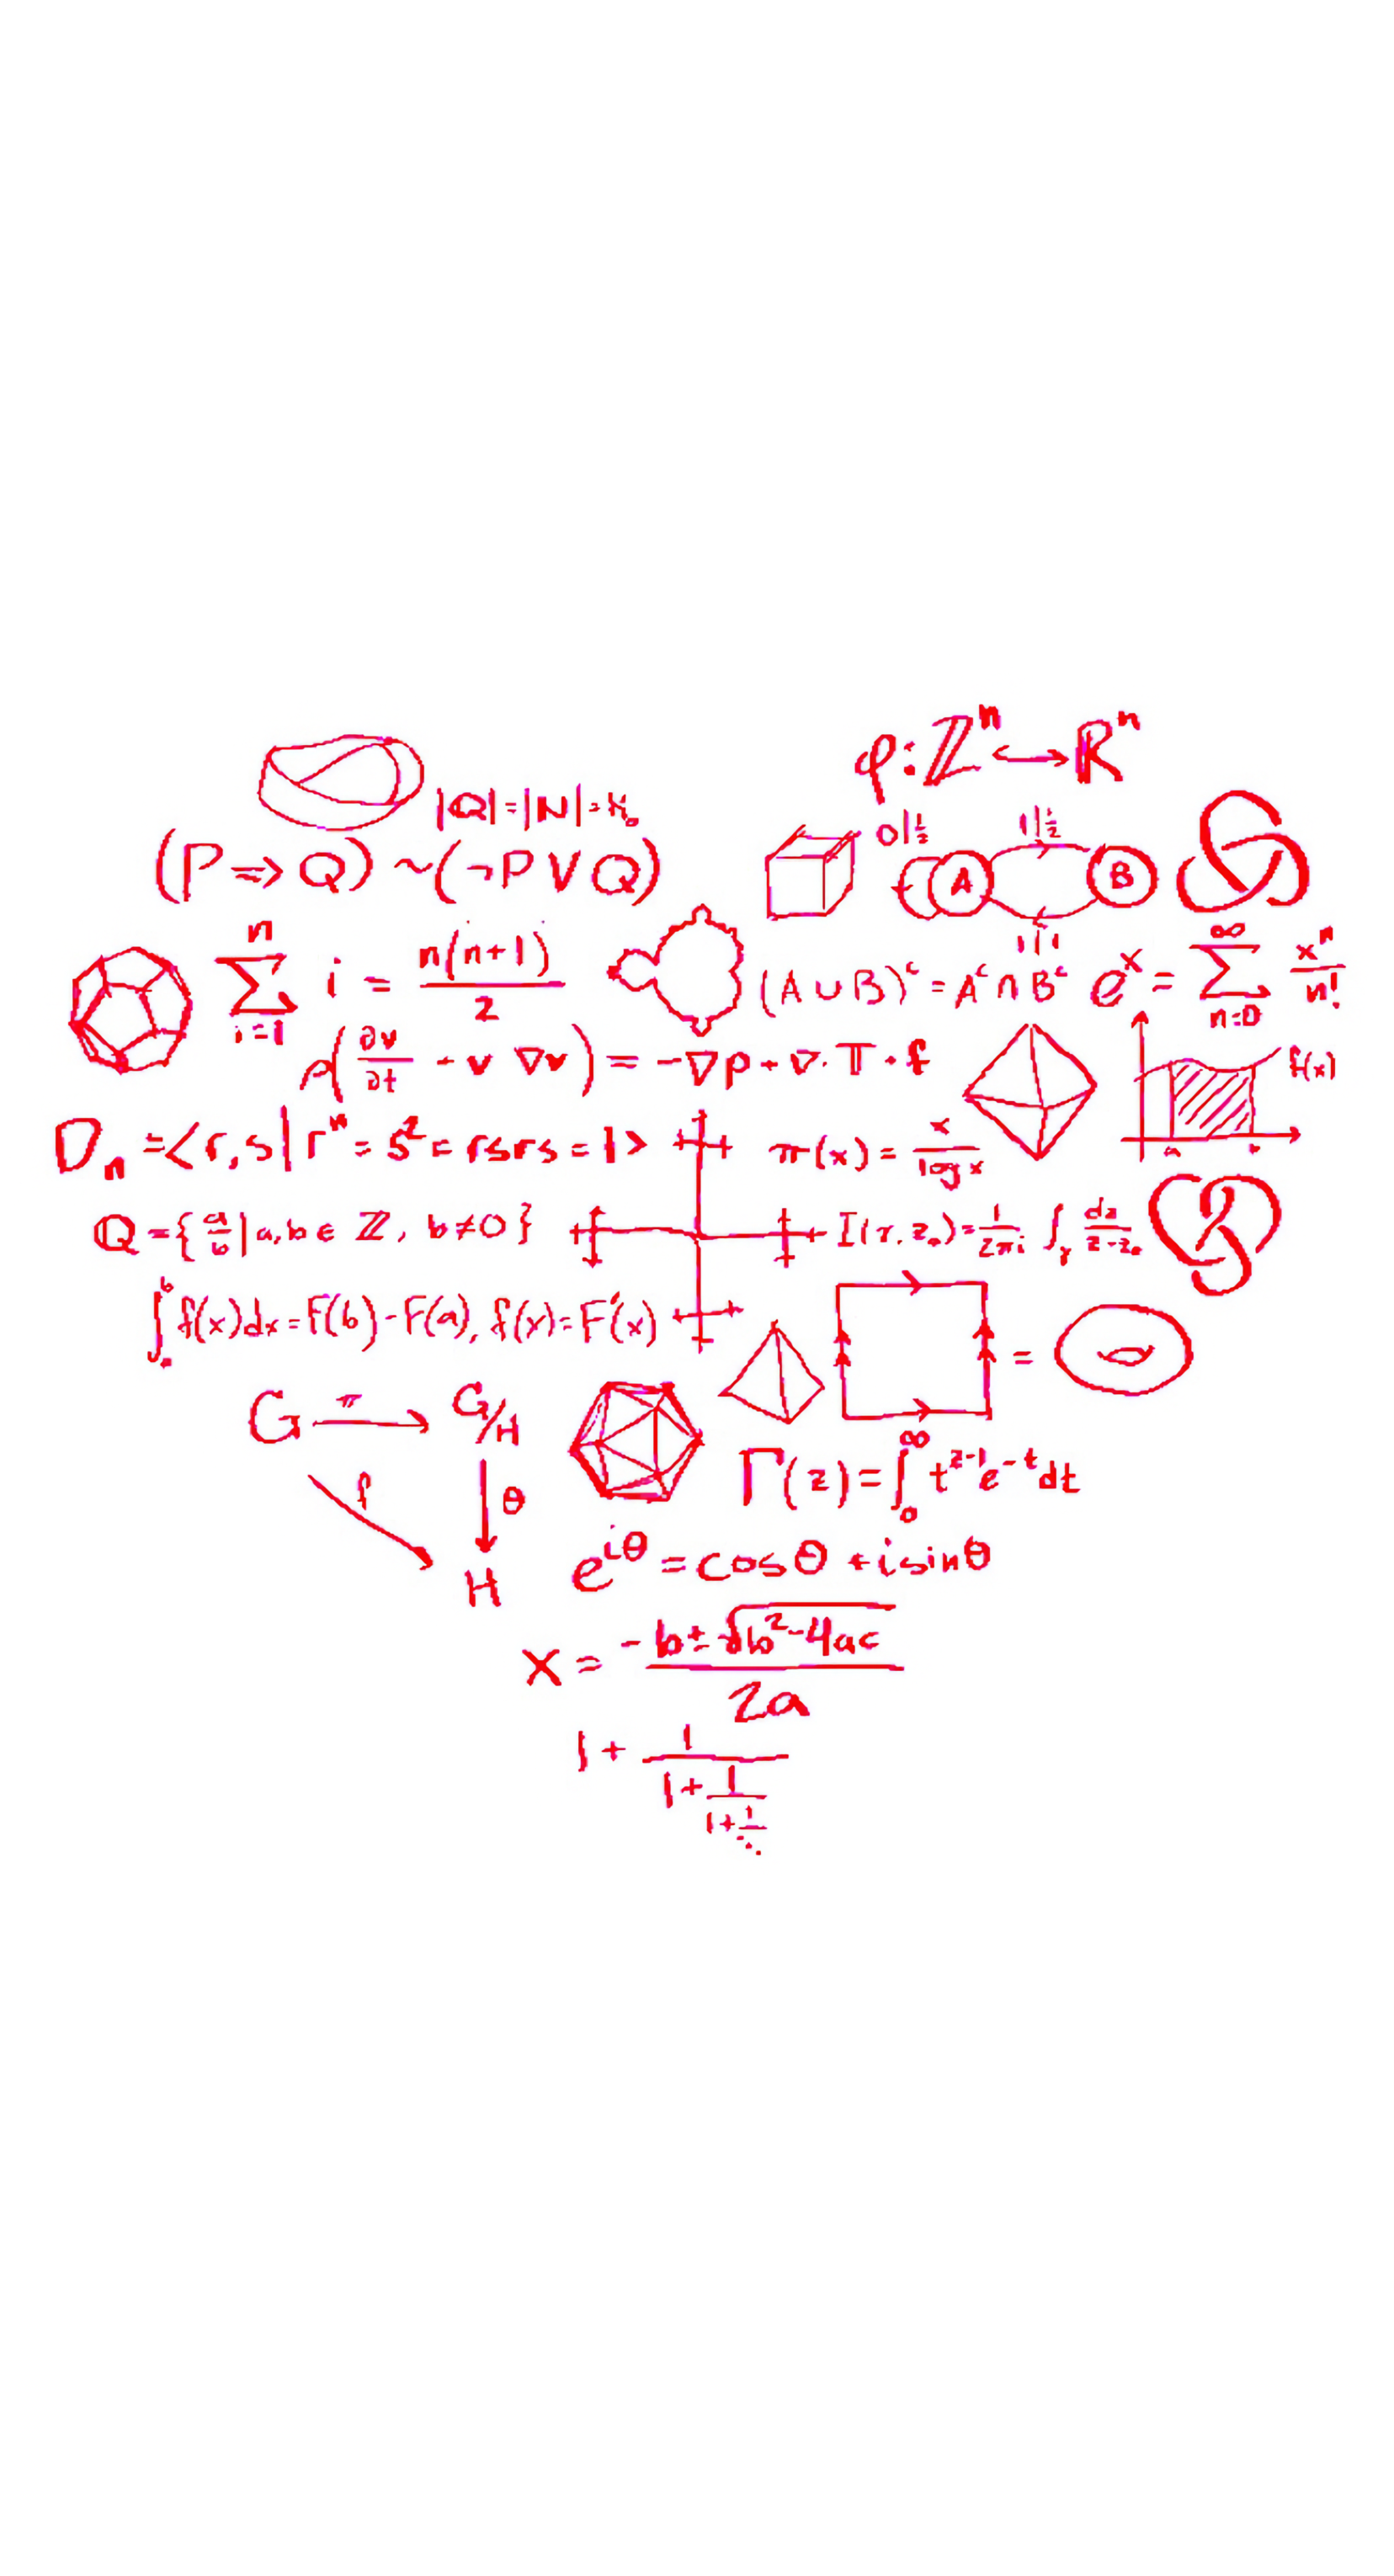 φ: ℤⁿ ↔ ℝⁿ
|ℚ| = |ℕ| = ℵ₀
(P ⇒ Q) ~ (¬P ∨ Q)
0|½ 1|½
A B
1|1
∑ᵢ₌₁ⁿ i = n(n+1)/2
(A ∪ B)ᶜ = Aᶜ ∩ Bᶜ
eˣ = ∑ₙ₌₀^∞ xⁿ/n!
ρ(∂v/∂t + v ∇v) = -∇p + ∇·𝕋 + f
f(x)
a b
Dₙ = <r,s | rⁿ = s² = rsrs = 1>
π(x) = x/log x
ℚ = {a/b | a,b ∈ ℤ, b ≠ 0}
I(γ, z₀) = 1/2πi ∫_γ dz/z-z₀
∫ₐᵇ f(x)dx = F(b) - F(a), f(x) = F'(x)
=
G π G/H
f θ
H
Γ(z) = ∫₀^∞ t^(z-1) e^(-t) dt
e^(iθ) = cosθ + isinθ
x = -b ± √(b²-4ac) / 2a
1 + 1/(1 + 1/(1 + 1/⋱))